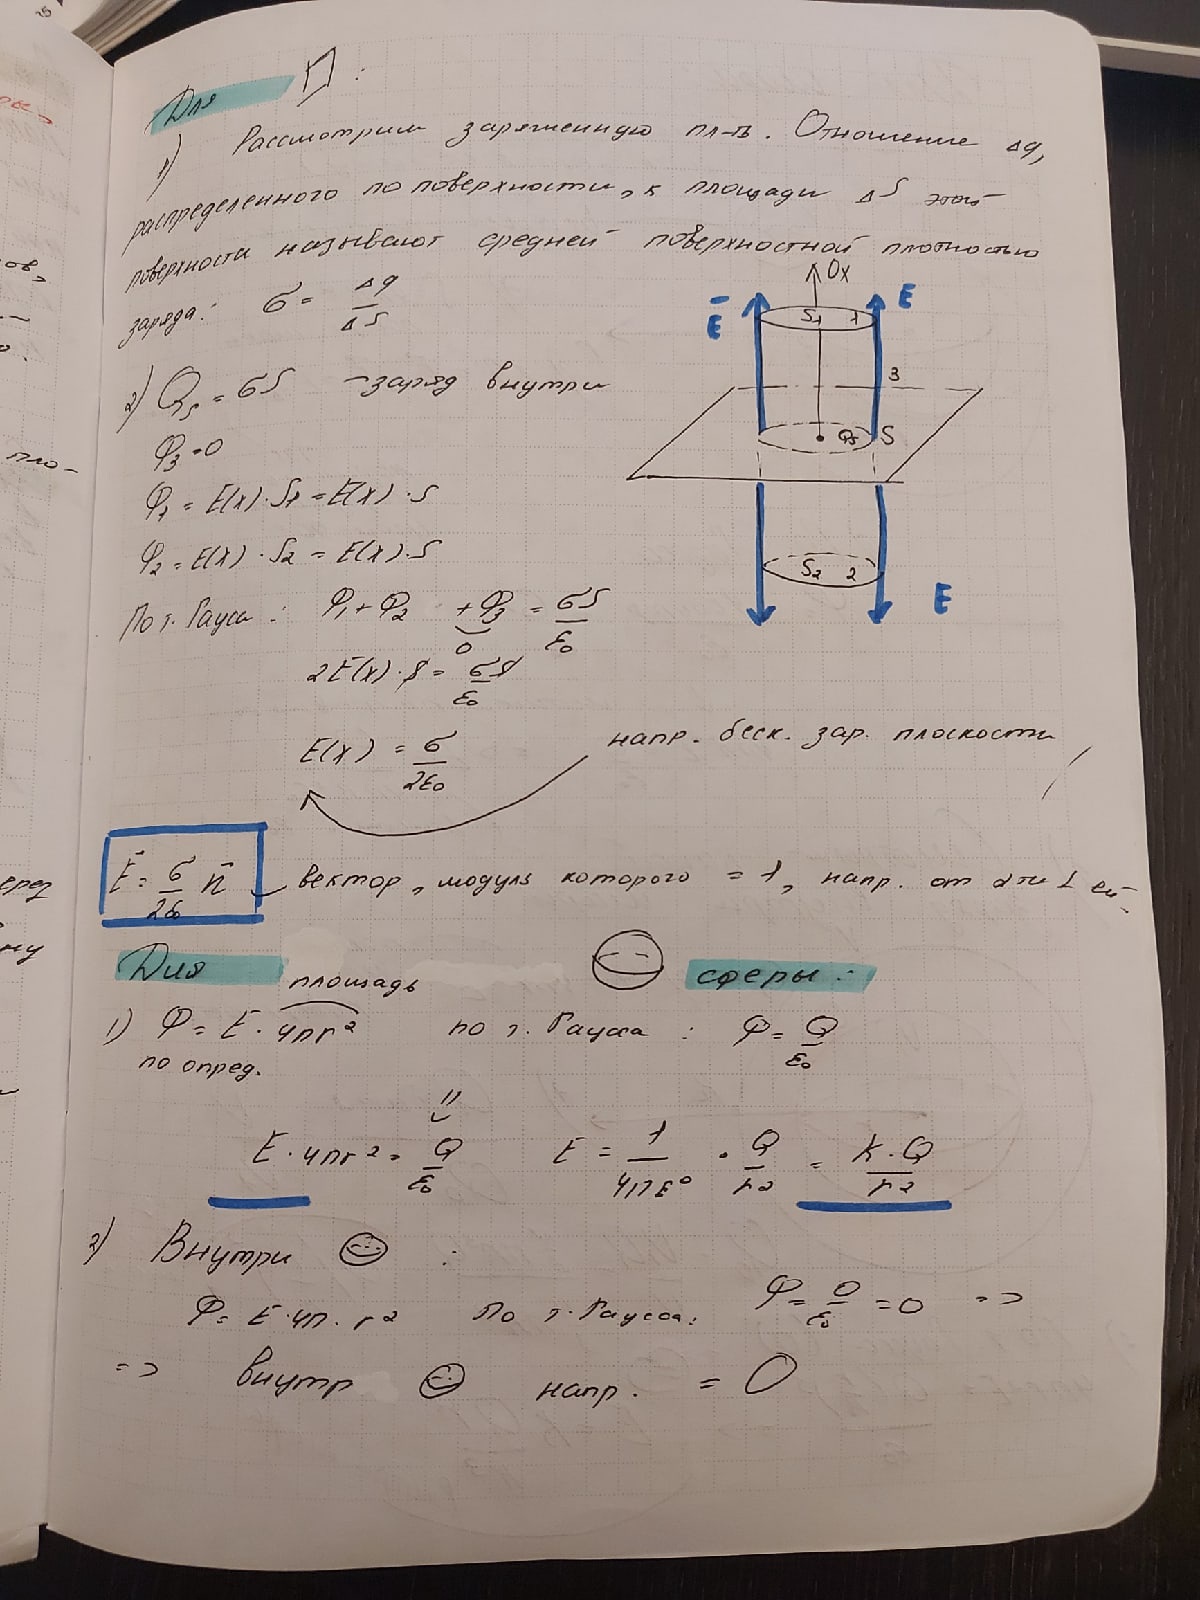 Для :
1) Рассмотрим заряженную пл-ть. Отношение Δq,
распределенного по поверхности, к площади ΔS этой
поверхности называют средней поверхностной плотностью
заряда: σ = Δq/ΔS
Ox
E
E
S1 1
3
S
S2 2
E
2) Qs = σS – заряд внутри
Φ3 = 0
Φ1 = E(x)·S1 = E(x)·S
Φ2 = E(x)·S2 = E(x)·S
По т. Гауса: Φ1 + Φ2 + Φ3 = σS/ε0
0
2E(x)·S = σS/ε0
E(x) = σ/2ε0
напр. беск. зар. плоскости
E = σ/2ε0 n – вектор, модуль которого = 1, напр. от
Для сферы:
площадь
1) Φ = E·4πr² по т. Гаусса: Φ = Q/ε0
по опред.
E·4πr² = Q/ε0 E = 1/4πε0 · Q/r² = k·Q/r²
2) Внутри :
Φ = E·4π·r² По т. Гаусса: Φ = 0/ε0 = 0 =>
=> внутр напр. = 0